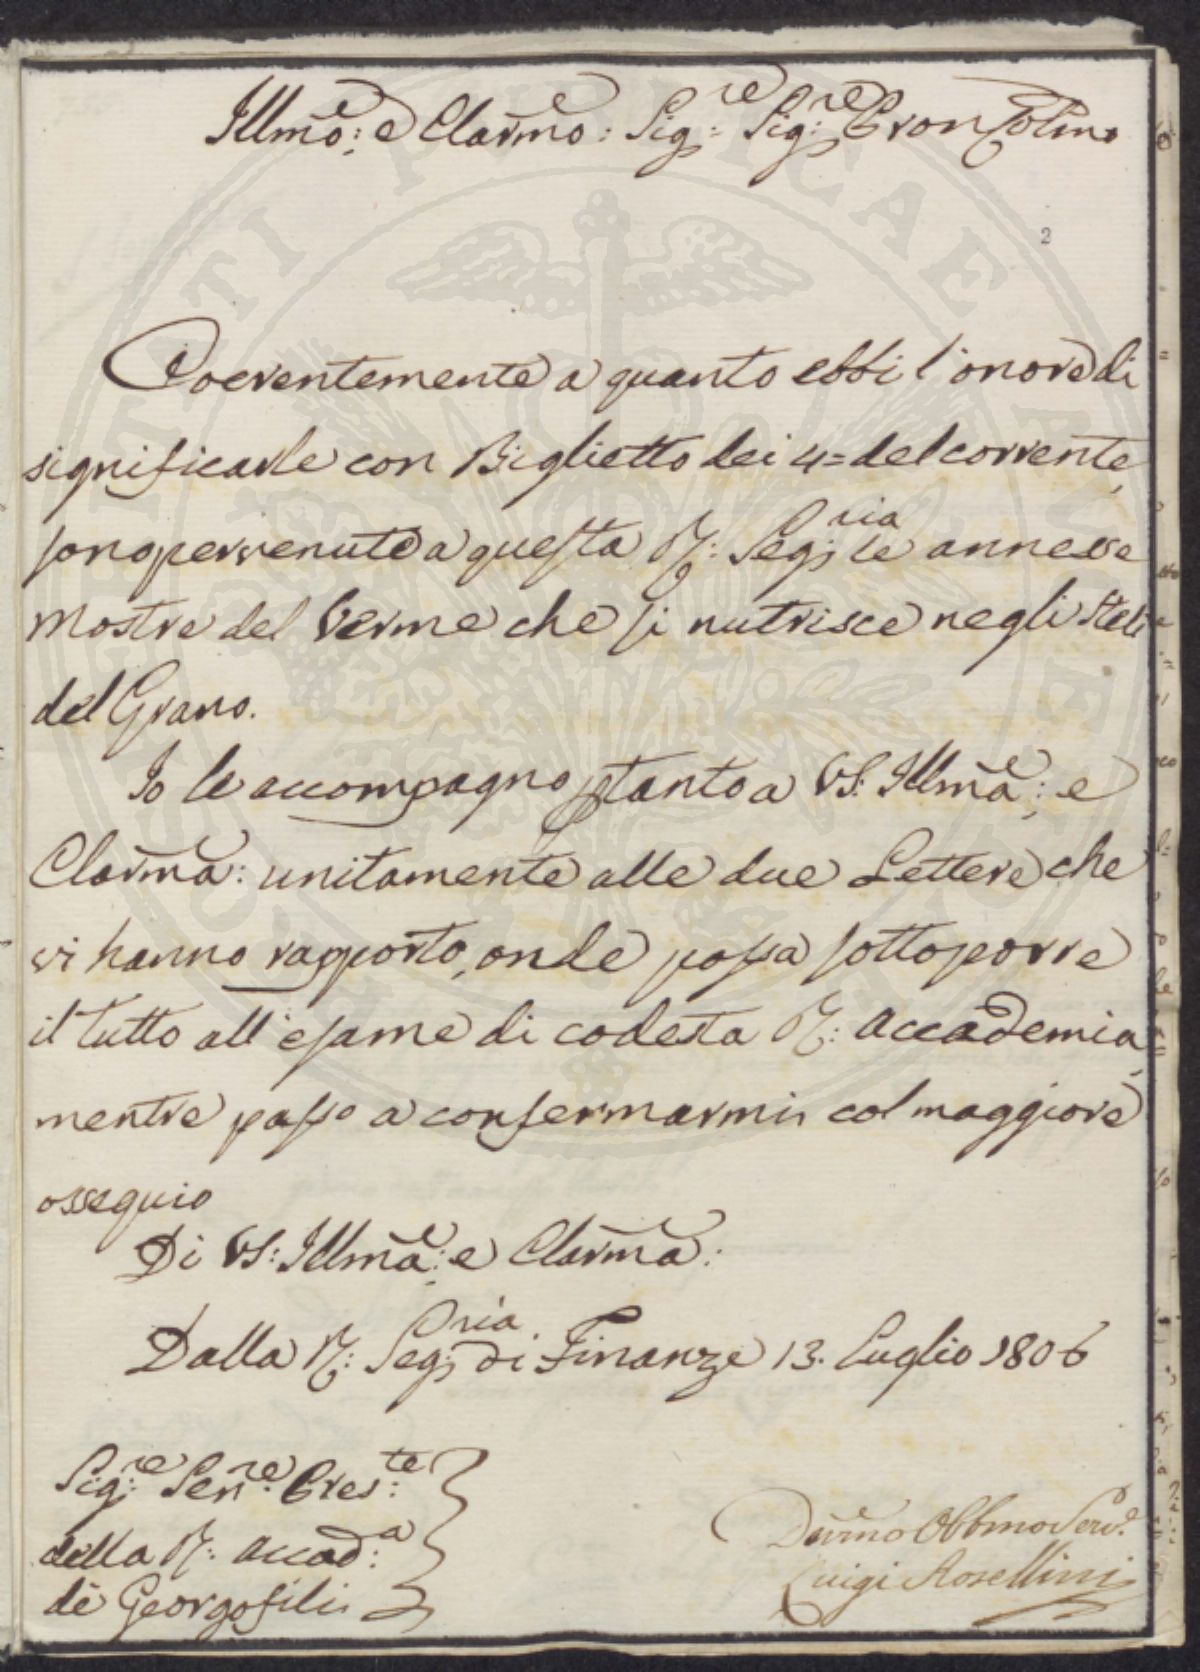 Illmo: e Clarmo: Sig:re Sig:re Pron Colmo
2
Coerentemente a quanto ebbi l'onore di
significarle con Biglietto dei 4= del corrente,
sono pervenute a questa R: Seg:ria le annesse
mostre del Verme che si nutrisce negli Steli
del Grano.
Io le accompagno ptanto a VS: Illma: e
Clarma: unitamente alle due Lettere che
vi hanno rapporto, onde possa sottoporre
il tutto all'esame di codesta R: Accademia,
mentre passo a confermarmi col maggiore
ossequio
Di VS: Illma: e Clarma:
Dalla R: Seg:ria di Finanze 13. Luglio 1806
Sig:re Sen:re Pres:te
della R: Accad:a
dè Georgofili
Devmo Obbmo Serv.e
Luigi Rosellini